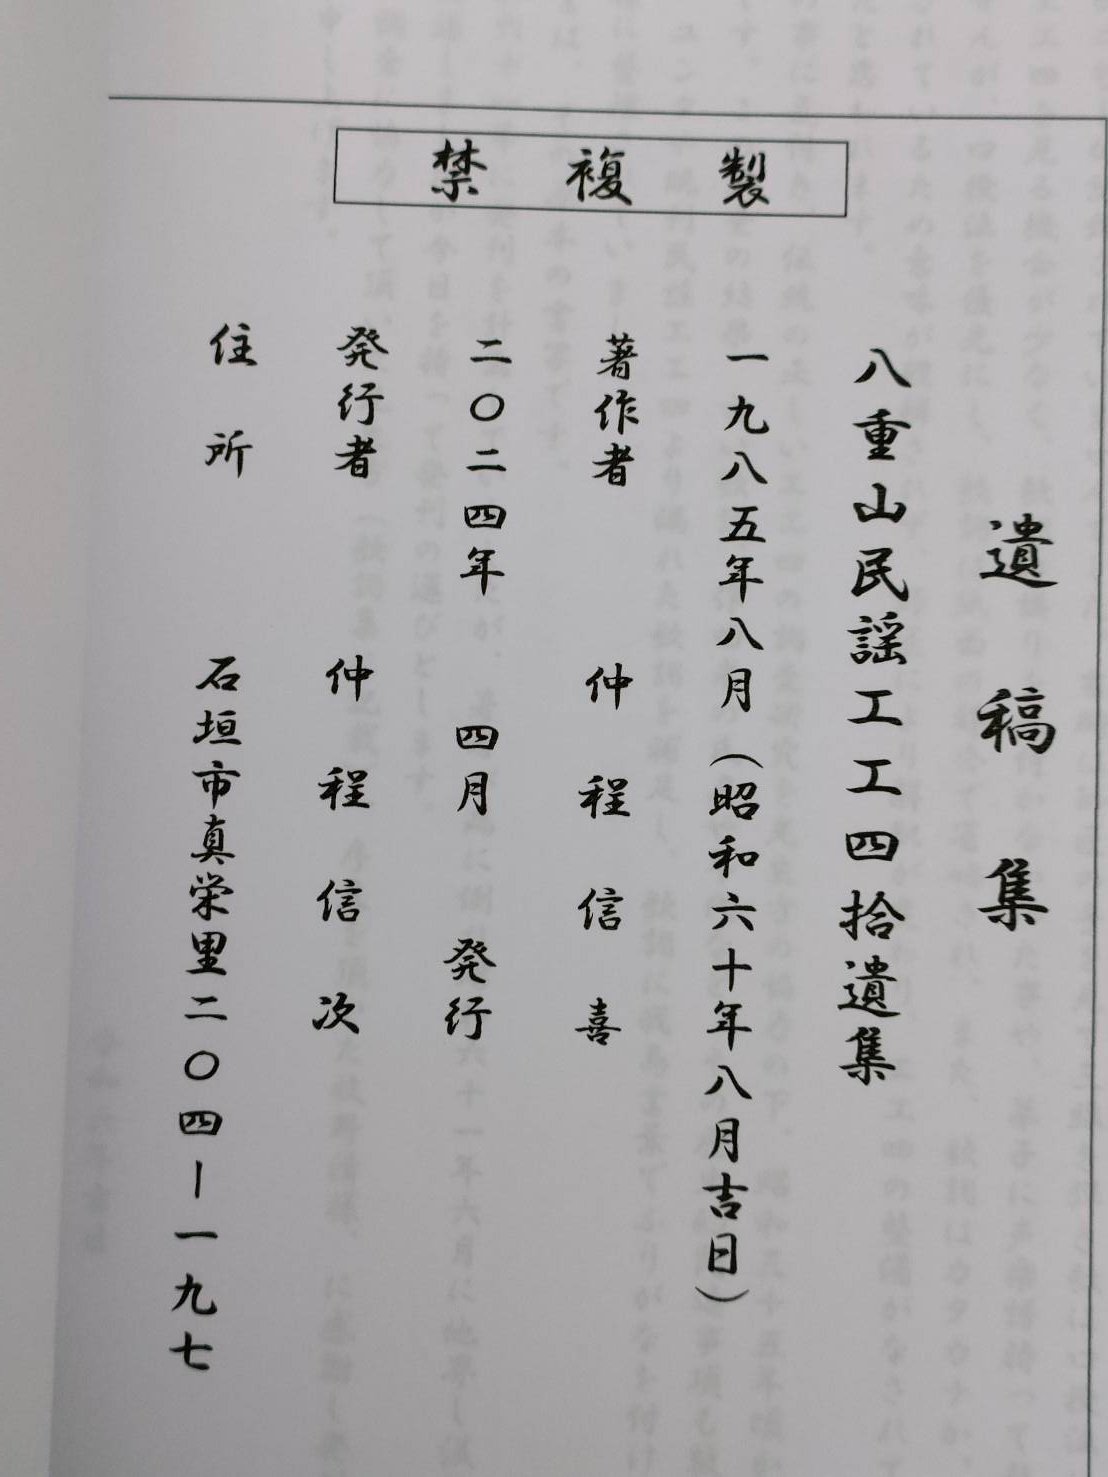 禁複製
遺稿集
八重山民謡工工四拾遺集
一九八五年八月（昭和六十年八月吉日）
著作者　仲程信喜
二〇二四年　四月　発行
発行者　仲程信次
住所　石垣市真栄里二〇四－一九七